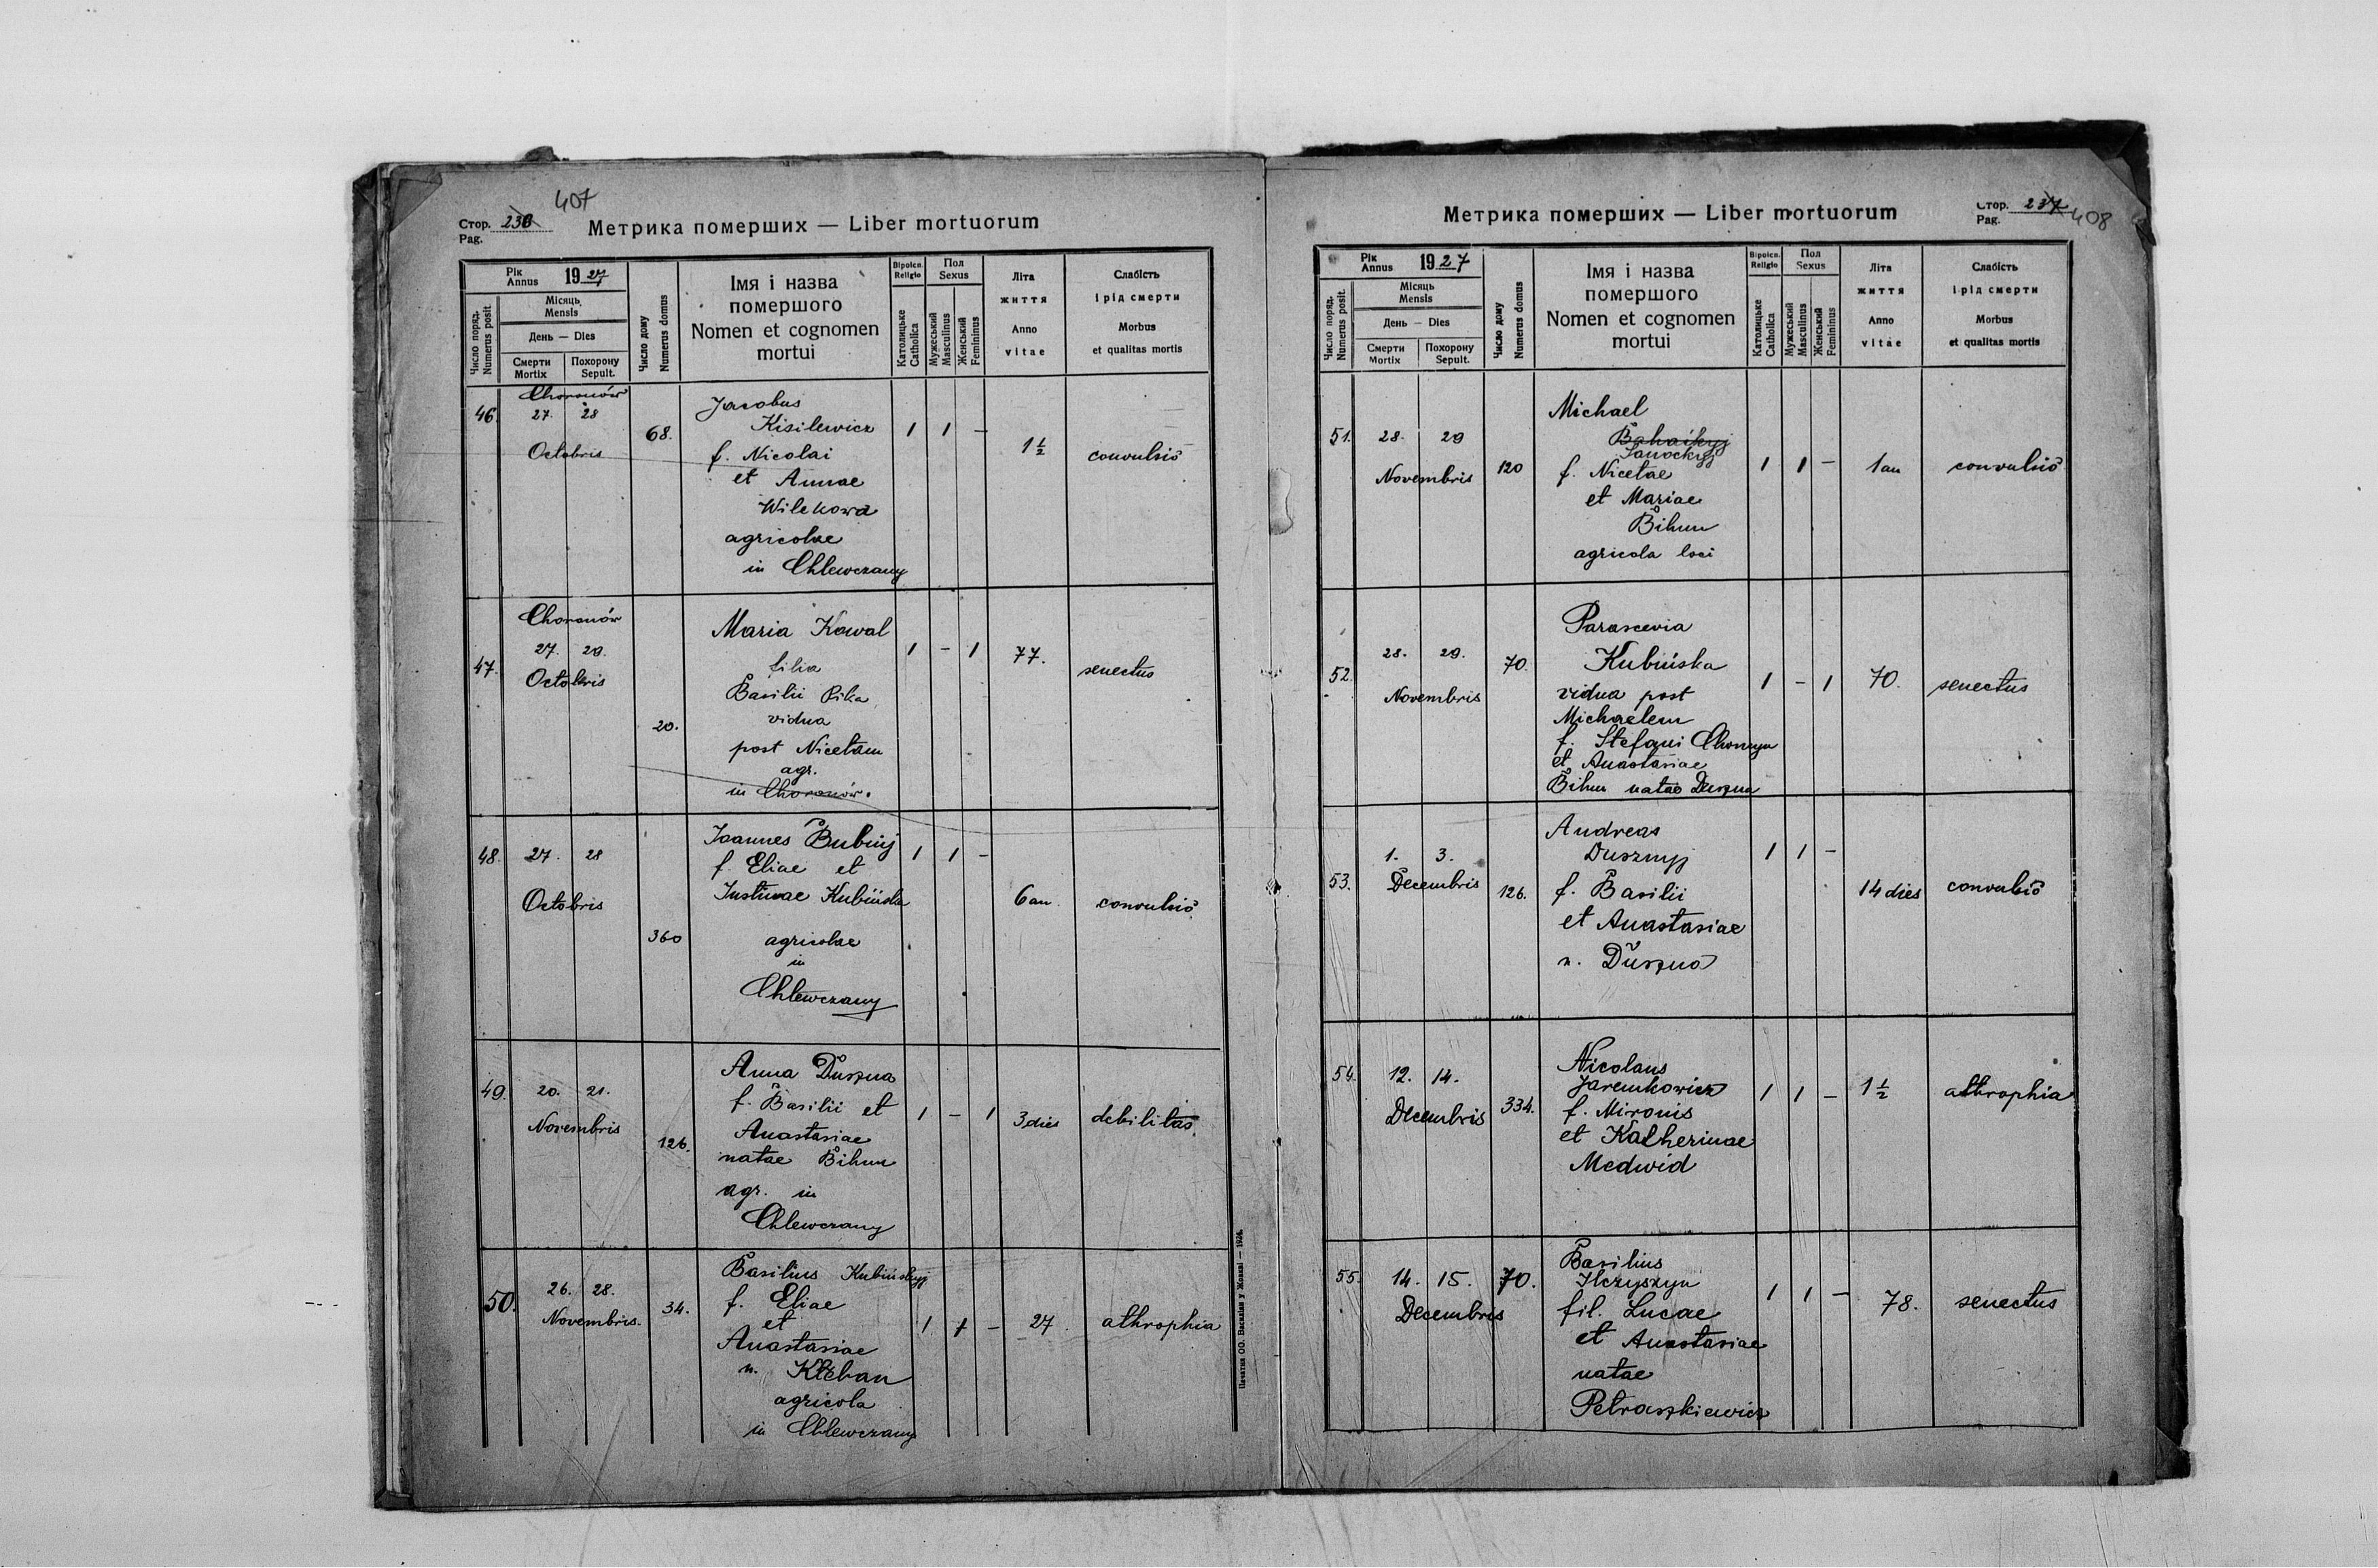 407
Стор. 236
Pag.
Метрика померших — Liber mortuorum
Рік
Annus
1927
Число поряд.
Numerus posit.
Місяць
Mensis
День — Dies
Смерти
Mortix
Похорону
Sepult.
Число дому
Numerus domus
Імя і назва
помершого
Nomen et cognomen
mortui
Віроісп.
Religio
Католицьке
Catholica
Пол
Sexus
Мужеський
Masculinus
Женський
Femininus
Літа
життя
Anno
vitae
Слабість
і рід смерти
Morbus
et qualitas mortis
46.
Choronów
27. 28
Octobris
68.
Jacobus
Kisilewicz
f. Nicolai
et Annae
Wilkowa
agricolae
in Chlewczany
1 1 —
1 1/2
convulsio
47.
Choronów
27. 29.
Octobris
20.
Maria Kowal
filia
Basilii Pika
vidua
post Nicetam
agr.
in Choronów.
1 – 1
77.
senectus
48.
27. 28
Octobris
360
Joannes Bubnij
f. Eliae et
Justinae Kubińska
agricolae
in
Chlewczany
1 1 –
6 an.
convulsio
49.
20. 21.
Novembris
126.
Anna Duszna
f. Basilii et
Anastasiae
natae Bihun
agr. in
Chlewczany
1 – 1
3 dies
debilitas
50.
26. 28.
Novembris.
34.
Basilius Kubińskyj
f. Eliae
et
Anastasiae
n. Kleban
agricola
in Chlewczany
1 1 –
27.
athrophia
Печатня ОО. Василіян у Жовкві — 1924.
Метрика померших — Liber mortuorum
Стор. 237
Pag.
408
Рік
Annus
1927
Число поряд.
Numerus posit.
Місяць
Mensis
День — Dies
Смерти
Mortix
Похорону
Sepult.
Число дому
Numerus domus
Імя і назва
помершого
Nomen et cognomen
mortui
Віроісп.
Religio
Католицьке
Catholica
Пол
Sexus
Мужеський
Masculinus
Женський
Femininus
Літа
життя
Anno
vitae
Слабість
і рід смерти
Morbus
et qualitas mortis
51.
28. 29
Novembris
120
Michael
Janockyj
f. Nicetae
et Mariae
Bihun
agricola loci
1 1 –
1 an
convulsio
52.
28. 29.
Novembris
70.
Parascevia
Kubińska
vidua post
Michaelem
f. Stefani
et Anastasiae
Bihun natae Duszna
1 – 1
70.
senectus
53.
1. 3.
Decembris
126.
Andreas
Dusznyj
f. Basilii
et Anastasiae
n. Duszna
1 1 –
14 dies
convulsio
54.
12. 14.
Decembris
334.
Nicolaus
Jaremkowicz
f. Mironis
et Katherinae
Medwid
1 1 –
1 1/2
athrophia
55.
14. 15.
Decembris
70.
Basilius
Ilczyszyn
fil. Lucae
et Anastasiae
natae
Petraszkiewicz
1 1 –
78.
senectus